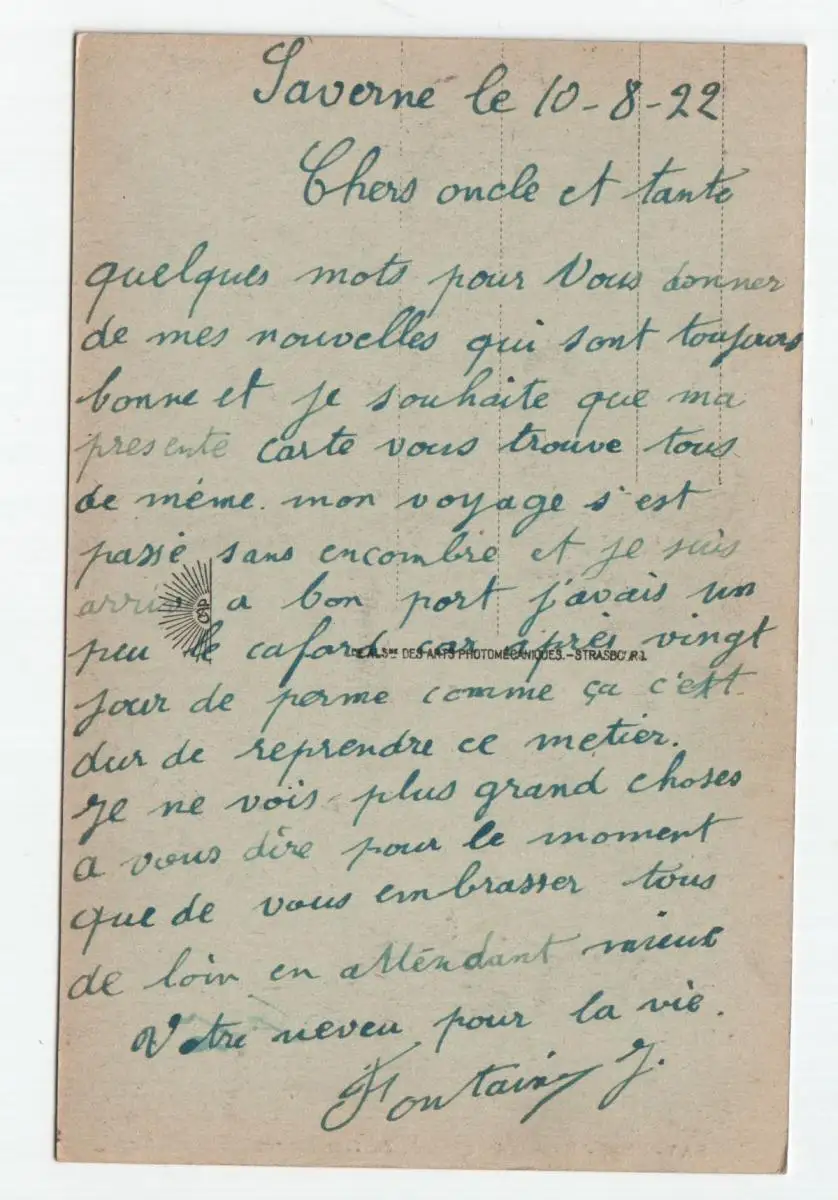 Saverne le 10-8-22
Chers oncle et tante
quelques mots pour Vous donner
de mes nouvelles qui sont toujours
bonne et je souhaite que ma
presente carte vous trouve tous
de même. mon voyage s'est
passé sans encombre et je suis
arrivé a bon port j'avais un
CAP
peu le cafard car après vingt
DES ARTS PHOTOMÉCANIQUES.-STRASBOURG
jour de perme comme ça c'est
dur de reprendre ce metier.
Je ne vois plus grand choses
a vous dire pour le moment
que de vous embrasser tous
de loin en attendant mieux
Votre neveu pour la vie.
Fontaine J.